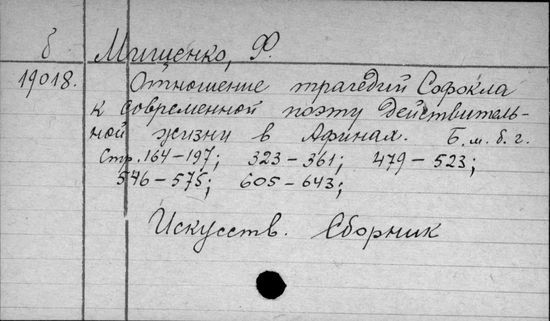 б Мищенко, Ф.
19018. Отношение трагедий Софокла
к современной поэту действитель-
ной жизни в Афинах. Б. м. б. г.
Стр. 164-197; 323-361; 479-523;
546-575; 605-643;
Искусств. Сборник